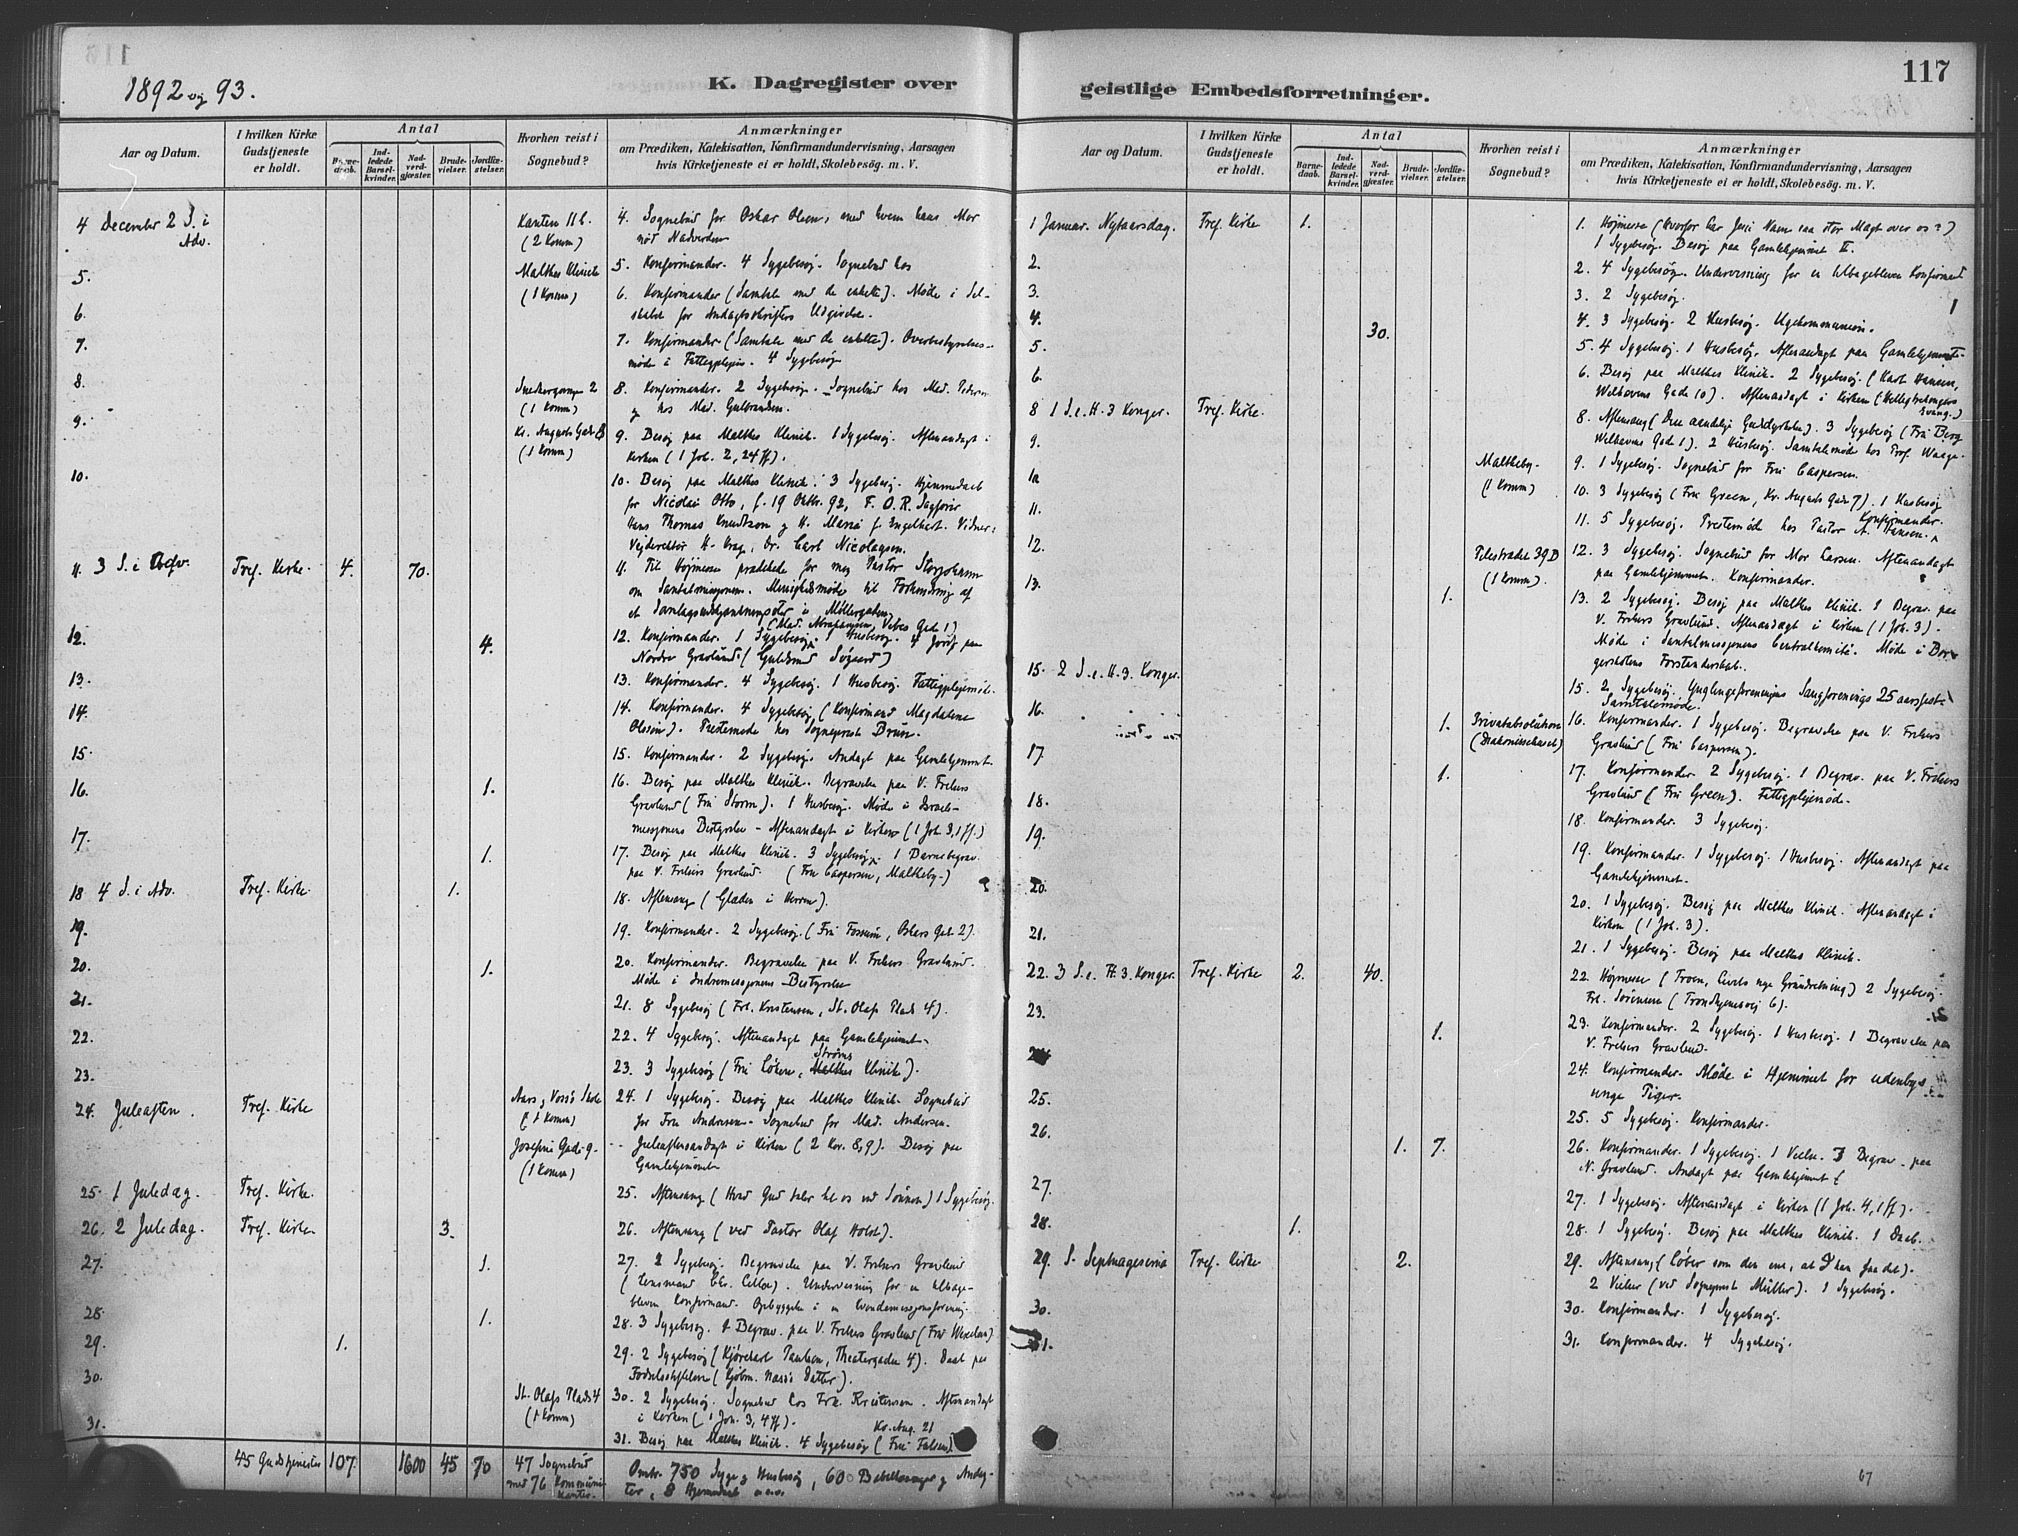 1892 og 93.
K. Dagregister over
Aar og Datum.
I hvilken Kirke
Gudstjeneste
er holdt.
Antal
Barne-
daab.
Ind-
ledede
Barsel-
kvinder.
Nad-
verd-
gjæster.
Brude-
vielser.
Jordfæ-
stelser.
Hvorhen reist i
Sognebud?
Anmærkninger
om Prædiken, Katekisation, Konfirmandundervisning, Aarsagen
hvis Kirketjeneste ei er holdt, Skolebesøg. m. V.
4 December 2 S. i
Adv.
(2 Komm)
4. Sognebud for Oskar Olsen, med hvem hans Mor
nød Nadverden
5.
Malthes Klinik
(1 Komm)
5. Konfirmander. 4 Sygebesøg. Sognebud hos
6.
6. Konfirmander (Samtale med de enkelte). Møde i Sel-
skabet for Andagtsskrifters Udgivelse.
7.
7. Konfirmander (Samtale med de enkelte). Overbestyrelses-
møde i Fattigplejen. 4 Sygebesøg
8.
Snedkergangen 2
(1 Komm)
8. Konfirmander. 2 Sygebesøg. Sognebud hos Mad. Pedersen
og hos Mad. Gulbrandsen.
9.
Kr. Augusts Gade 8
(1 Komm)
9. Besøg paa Malthes Klinik. 1 Sygebesøg. Aftenandagt i
Kirken (1 Joh. 2, 24 ff).
10.
10. Besøg paa Malthes Klinik. 3 Sygebesøg. Hjemmedaab
for Nicolai Otto, f. 19 Oktbr. 92, F. O. R. Sagfører
Hans Thomas Knudtzon og H. Maria f. Engelhart. Vidner:
Vejdirektør H. Krag, Dr. Carl Nicolaysen.
11. 3 S. i Adv.
Tref. Kirke.
4.
70.
11. Til Højmesse prædikede for mig Pastor Storjohann
om Santalmissionen. Menighedsmøde til Forhindring af
et i Møllergaden
(Mad. Abrahamsen, Vibes Gade 1)
12.
4.
12. Konfirmander. 1 Sygebesøg. 1 Husbesøg. 4 Jordf. paa
Nordre Gravlund (Guldsmed Søgaard)
13.
13. Konfirmander. 4 Sygebesøg. 1 Husbesøg. Fattigplejemøde.
14.
14. Konfirmander. 4 Sygebesøg (Konfirmand Magdalena
Olsson). Præstemøde hos Sogneprest Bruun.
15.
15. Konfirmander. 2 Sygebesøg. Andagt paa Gamlehjemmet.
16.
1.
16. Besøg paa Malthes Klinik. Begravelse paa V. Frelsers
Gravlund (Fru Storm). 1 Husbesøg. Møde i Israels-
missionens Bestyrelse - Aftenandagt i Kirken (1 Joh. 3, 1 ff.)
17.
1.
17. Besøg paa Malthes Klinik. 3 Sygebesøg. 1 Barnebegrav.
paa V. Frelsers Gravlund. (Fru Caspersen, Maltheby.)
18 4 S. i Adv.
Tref. Kirke.
1.
18. Aftensang (Glæden i Herren).
19.
19. Konfirmander. 2 Sygebesøg. (Fru Fossum, Oskars Gade 2).
20.
1.
20. Konfirmander. Begravelse paa V. Frelsers Gravlund.
Møde i Indremissionens Bestyrelse
21.
21. 8 Sygebesøg (Frk. Kristensen, St. Olafs Plads 4).
22.
22. 4 Sygebesøg. Aftenandagt paa Gamlehjemmet.
23.
Strøms
23. 3 Sygebesøg (Fru Løken, Malthes Klinik).
24. Juleaften.
Tref. Kirke
Aars og Voss's Skole
(1 Komm)
24. 1 Sygebesøg. Besøg paa Malthes Klinik. Sognebud
for Fru Andresen. Sognebud for Mad. Andersen.
Josefine Gade 9.
(1 Komm)
-- Juleaftensandagt i Kirken (2 Kor. 8, 9). Besøg paa
Gamlehjemmet
25. 1 Juledag.
Tref. Kirke.
25. Aftensang (Hvad Gud taler til os ved Sønnen) 1 Sygebesøg.
26. 2 Juledag.
Tref. Kirke.
3.
26. Aftensang (ved Pastor Olaf Holst).
27.
1.
27. 2 Sygebesøg. Begravelse paa V. Frelsers Gravlund
(Lensmand Chr. ). Undervisning for en tilbage-
bleven Konfirmand. Opbyggelse i en Kvindemissionsforening.
28.
1.
28. 3 Sygebesøg. 1 Begrav. paa V. Frelsers Gravlund (Fru Wexelsen)
29.
1.
29. 2 Sygebesøg (Kjørekarl Paulsen, Theatergaden 4). Daab paa
Fødselsstiftelsen ( Datter).
30.
St. Olafs Plads 4
(1 Komm)
30. 2 Sygebesøg. Sognebud hos Frk. Kristensen. Aftenandagt
i Kirken (1 Joh. 3, 4 ff).
Kr. Aug. 21
31.
31. Besøg paa Malthes Klinik. 4 Sygebesøg (Fru Falsen).
45 Gudstjenester
107.
1600
45
70
47 Sognebud
med 76 Kommuni-
kanter.
Omtr. 750 Syge og Husbesøg, 60 Bibellæsninger og Andag-
ter, 8 Hjemmedaab
117
geistlige Embedsforretninger.
Aar og Datum.
I hvilken Kirke
Gudstjeneste
er holdt.
Antal
Barne-
daab.
Ind-
ledede
Barsel-
kvinder.
Nad-
verd-
gjæster.
Brude-
vielser.
Jordfæ-
stelser.
Hvorhen reist i
Sognebud?
Anmærkninger
om Prædiken, Katekisation, Konfirmandundervisning, Aarsagen
hvis Kirketjeneste ei er holdt, Skolebesøg. m. V.
1 Januar. Nytaarsdag.
Tref. Kirke
1.
1. Højmesse (Hvorfor har Jesu Navn saa stor Magt over os?)
1 Sygebesøg. Besøg paa Gamlehjemmet II.
2.
2. 4 Sygebesøg. Undervisning for en tilbagebleven Konfirmand
3.
3. 2 Sygebesøg.
4.
30.
4. 3 Sygebesøg. 2 Husbesøg. Ugekommunion.
5.
5. 4 Sygebesøg. 1 Husbesøg. Aftenandagt paa Gamlehjemmet.
6.
6. Besøg paa Malthes Klinik. 2 Sygebesøg. (Karl Hansen,
Welhavens Gade 10). Aftenandagt i Kirken (Helligtrekongers
Evang.)
8 1 S. e. H. 3 Konger.
Tref. Kirke.
8. Aftensang (Den aandelige Gudsdyrkelse). 3 Sygebesøg (Fru Berg
Welhavens Gade 1). 2 Husbesøg. Samtalemøde hos Prof. Waage.
9.
Maltheby.
(1 Komm)
9. 1 Sygebesøg. Sognebud for Fru Caspersen.
10.
10. 3 Sygebesøg (Fru Green, Kr. Augusts Gade 7). 1 Husbesøg
Konfirmander.
11.
11. 5 Sygebesøg. Prestemøde hos Pastor A. Hansen.
12.
Pilestrædet 39 D
(1 Komm).
12. 3 Sygebesøg. Sognebud for Mor Larsen. Aftenandagt
paa Gamlehjemmet. Konfirmander.
13.
1.
13. 2 Sygebesøg. Besøg paa Malthes Klinik. 1 Begrav. paa
V. Frelsers Gravlund. Aftenandagt i Kirken (1 Joh. 3).
Møde i Santalmissionens Centralkomité. Møde i Bor-
gerskolens Forstanderskab.
15. 2 S. e. H. 3. Konger.
15. 2 Sygebesøg. Ynglingeforeningens Sangforenings 25 aarsfest.
Samtalemøde.
16.
1.
Privatabsolution
(Diakonissehuset)
16. Konfirmander. 1 Sygebesøg. Begravelse paa V. Frelsers
Gravlund (Fru Caspersen).
17.
1.
17. Konfirmander. 2 Sygebesøg. 1 Begrav. paa V. Frelsers
Gravlund (Fru Green). Fattigplejemøde.
18.
18. Konfirmander. 3 Sygebesøg.
19.
19. Konfirmander. 1 Sygebesøg. 1 Husbesøg. Aftenandagt paa
Gamlehjemmet.
20.
20. 1 Sygebesøg. Besøg paa Malthes Klinik. Aftenandagt i
Kirken (1 Joh. 3).
21.
21. 1 Sygebesøg. Besøg paa Malthes Klinik.
22. 3 S. e. H. 3. Konger.
Tref. Kirke
2.
40.
22. Højmesse (Troen, Livets nye Grundretning) 2 Sygebesøg.
Frk. Sørensen (Trondhjemsvej 6).
23.
1.
23. Konfirmander. 2 Sygebesøg. 1 Husbesøg. 1 Begravelse paa
V. Frelsers Gravlund.
24.
24. Konfirmander. Møde i Hjemmet for udenbys
unge Piger.
25.
25. 5 Sygebesøg. Konfirmander.
26.
1.
7.
26. Konfirmander. 1 Sygebesøg. 1 Vielse. 7 Begrav. paa
N. Gravlund. Andagt paa Gamlehjemmet
27.
27. 1 Sygebesøg. Aftenandagt i Kirken (1 Joh. 4, 1 ff).
28.
1.
28. 1 Sygebesøg. Besøg paa Malthes Klinik. 1 Daab.
29. S. Septuagesima
Tref. Kirke
2.
29. Aftensang (Løber som den ene, at I kan faa det).
2 Vielser (ved Sogneprest Müller). 1 Sygebesøg.
30.
30. Konfirmander. 1 Sygebesøg.
31.
31. Konfirmander. 4 Sygebesøg.
67